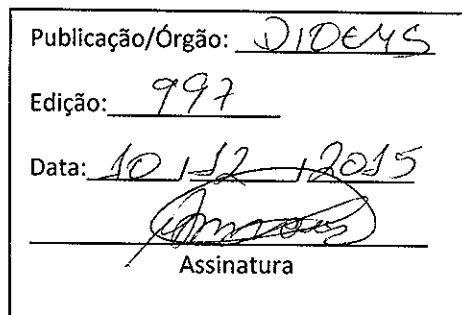 Publicação/Órgão: DIOEMS
Edição: 997
Data: 10 / 12 / 2015
Assinatura